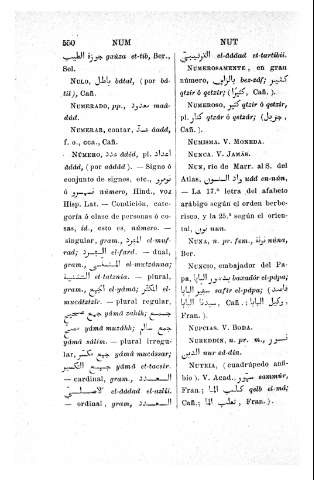 550 NUM NUT
gaŭza eṭ-ṭib, Ber., جوزة الطيب
Sol.
NULO, باطل bátal, (por bá-
til), Cañ.
NUMERADO, pp., معدود maâ-
dúd.
NUMERAR, contar, عدّ âadd,
f. o., oca., Cañ.
NÚMERO, عدد âdid, pl. اعداد
âdád, (por aâdâd). — Signo ó
conjunto de signos, etc.,
ó número, Hind., voz
Hisp. Lat. — Condición, cate-
goría ó clase de personas ó co-
sas, id., esto es, número. —
singular, gram., المفرد el-muf-
rad; الفرد el-fard. — dual,
gram., المثنى el-mutzdana;
التثنية el-tatznia. — plural,
gram., الجمع el-ŷamâ; المكثر el-
mucátstzir. — plural regular,
جمع صحيح ŷamâ zahih;
ŷamâ muzáhh; جمع سالم
ŷamâ sálim. — plural irregu-
lar, جمع مكسر ŷamâ macássar;
جمع التكسير ŷamâ et-tacsir.
— cardinal, gram., العدد
الاصلي el-âddad el-azlii.
— ordinal, gram, العدد
الترتيبي el-âddad et-tartibii.
NUMEROSAMENTE, en gran
número, بالزاف bez-záf;
كثير qtzir ó qetzir, (كثيرا, Cañ.).
NUMEROSO, كثير qtzir ó qetzir,
pl. كثار qtzár, (جزيل,
Cañ.).
NUMISMA. V. MONEDA.
NUNCA. V. JAMÁS.
NUN, río de Marr. al S. del
Atlas, واد النون uád en-nún,
— La 17.ª letra del alfabeto
arábigo según el orden berbe-
risco, y la 25.ª según el orien-
tal, نون nun.
NUNA, n. pr. fem., نونة núna,
Ber.
NUNCIO, embajador del Pa-
pa, باشدور البابا baxadór el-pápa;
سفير البابا safir el-pápa (قاصد
سيدنا البابا, Cañ.; وكيل البابا,
Fran.).
NUPCIAS. V. BODA.
NUREDDIN, n. pr. m., نور
الدين nur ed-din.
NUTRIA, (cuadrúpedo anfi-
bio). V. Acad., سمور sammúr,
Fran.; كلب الما qelb el-má;
Cañ.; ثعلب الما, Fran.).